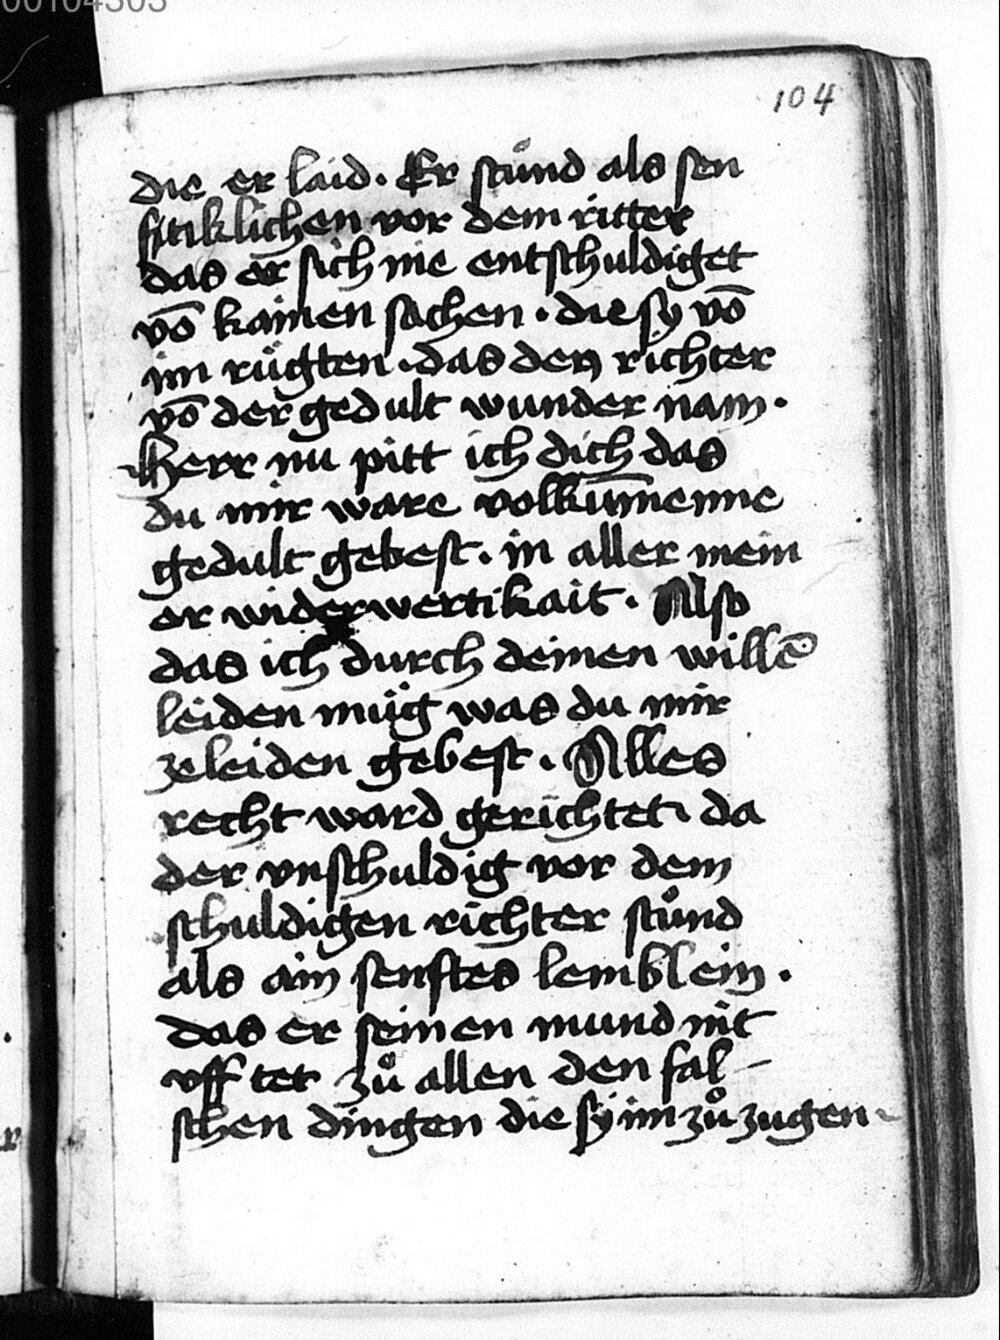 00104303
104
die er laid. Er stuͦnd als sen
fftiklichen vor dem ritter
das er sich nie entschuldiget
võ kainen sachen. die sy võ
im rügten. das den richter
võ der gedult wunder nam.
Herr nu pitt ich dich das
du mir ware volkum̃enne
gedult gebest. in aller mein
er widerwertikait. Also
das ich durch deinen willẽ
leiden müg was du mir
ze leiden gebest. Alles
recht ward gerichtet. da
der vnschuldig vor dem
schuldigen richter stuͦnd
als ain senftes lemblein.
das er seinen mund nit
vff tet zuͦ allen den fal-
schen dingen die sy im zuͦ zugen